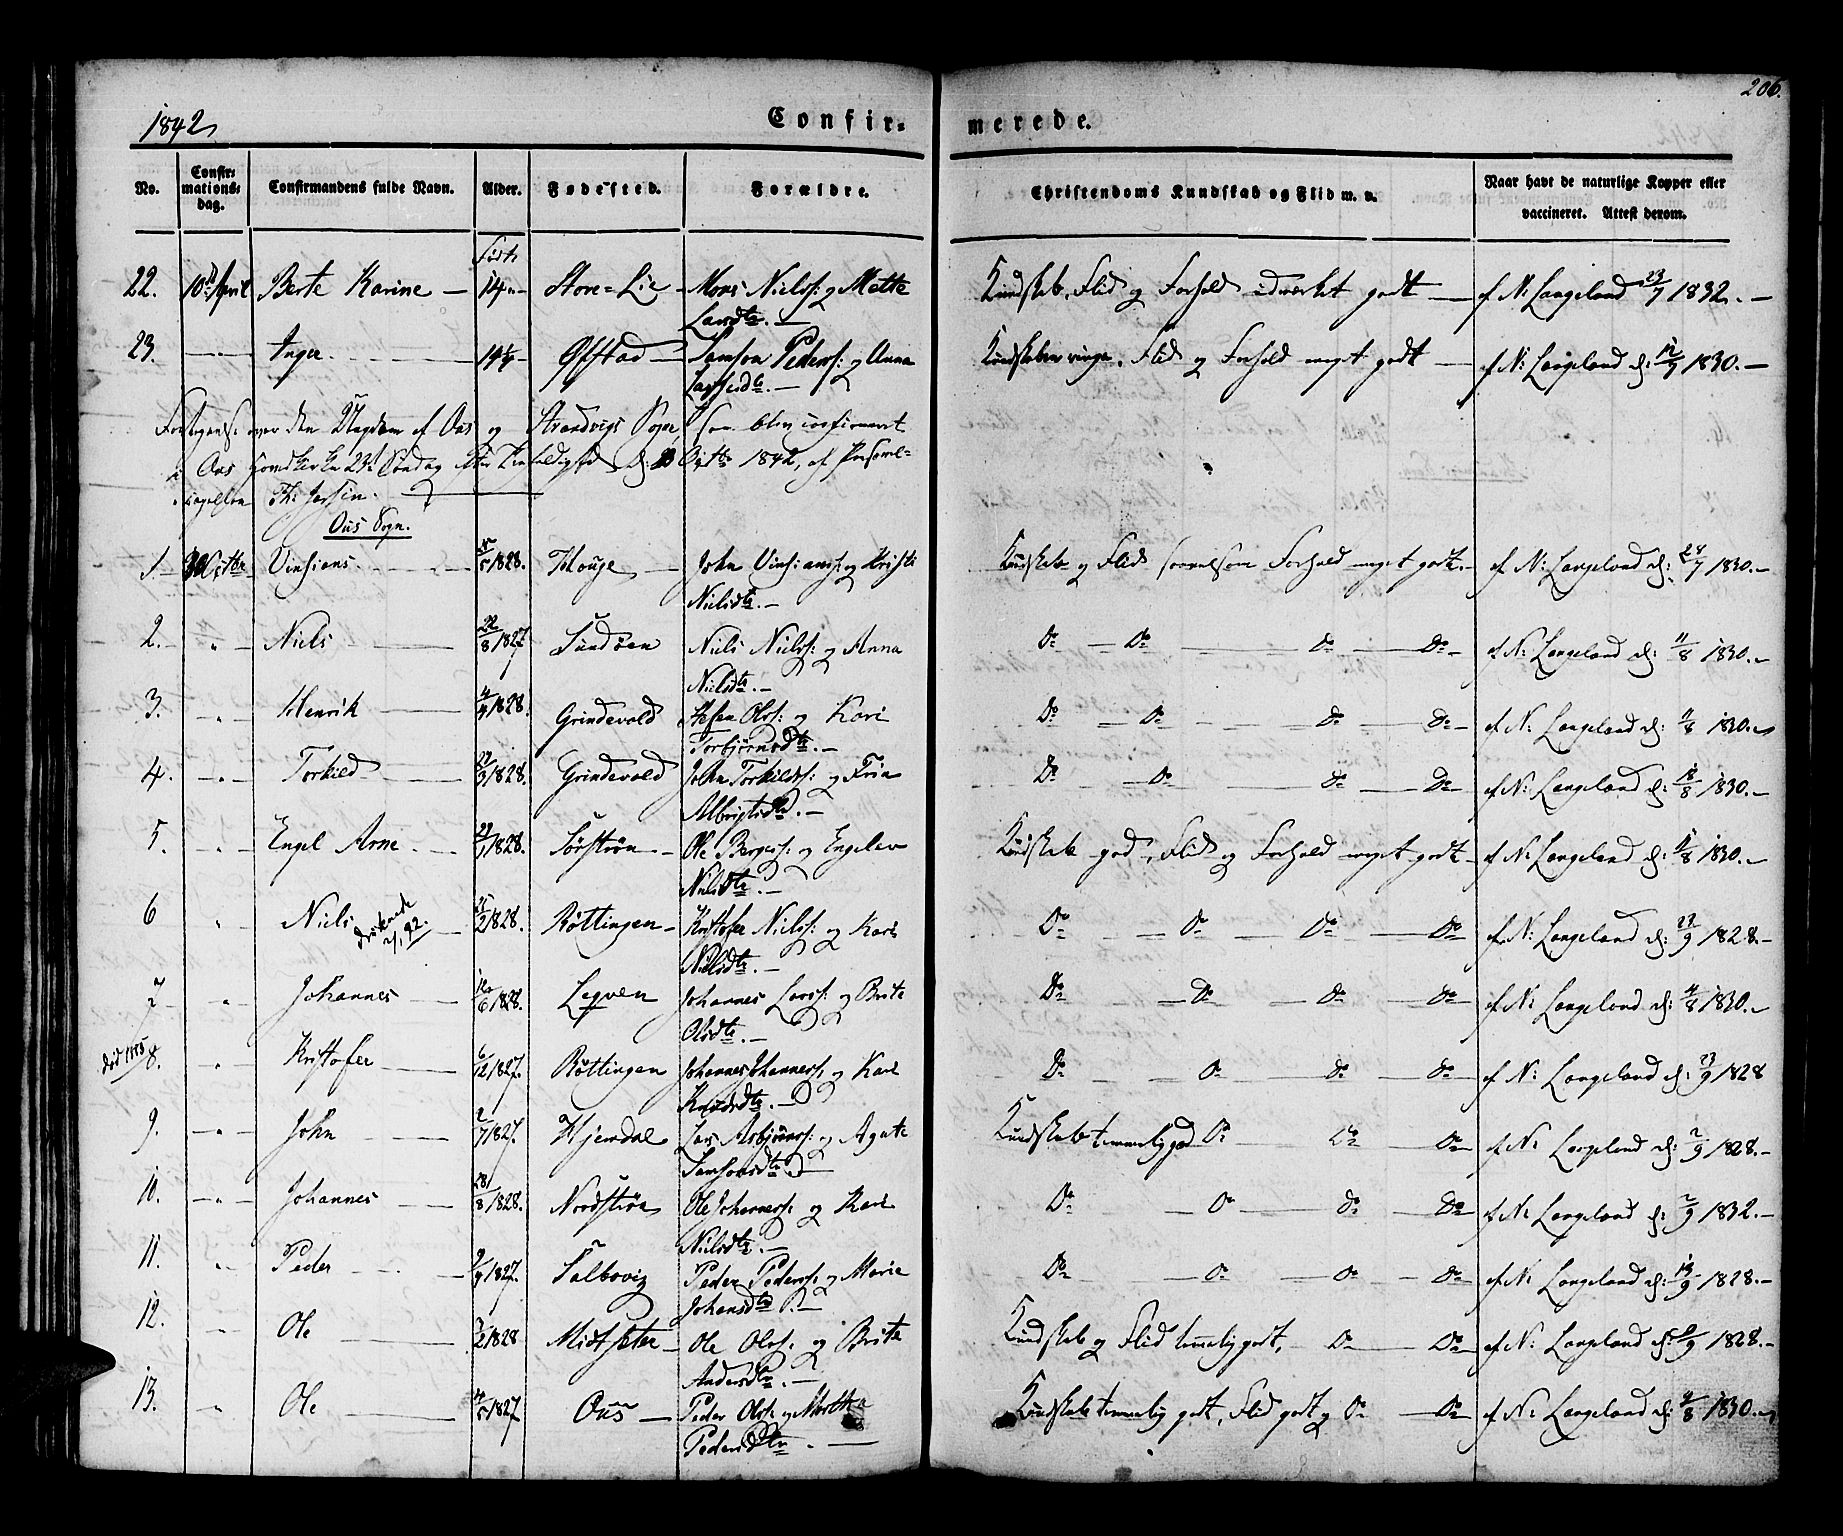 206.
1842
Confir- merede.
No. Confir- mations- dag. Confirmandens fulde Navn. Alder. Fødested. Forældre. Christendoms Kundskab og Flid m. v. Naar havt de naturlige Kopper eller vaccineret. Attest derom.
22. 10de April Berte Karine — 14 Store-Lie Mons Nielss: og Mette Larsdtr. — Kundskab, Flid og Forhold udmerket godt — af N: Langeland 23/7 1832. —
23. — Inger 14½ Øfstad — Samson Peders: og Anna Lassesdtr. — Kundskaben ringe, Flid og Forhold meget godt — af N: Langeland d: 12/7 1830. —
Fortegnelse over den Ungdom af Ous og Strandvigs Sogne, som blev confirmeret
i Ous Hovedkirke 23d Søndag efter Trefoldighed d: 30 Octbr 1842, af Personel-
capellan Th: Jersin.
Ous Sogn.
1. 30 Octbr Vinsians 5/1828. Houge — John Vinsianss: og Kristi Nielsdtr. — Kundskab og Flid saavelsom Forhold meget godt. — af N: Langeland d: 24/7 1830. —
2. " Niels 22/8 1827 Sundøen Niels Nielss: og Anna Nielsdtr. — Do — Do — Do — Do — af N: Langeland d: 11/8 1830. —
3. " Henrik 4/4 1828. Grindevold Steffen Olss: og Kari Torbjørnsdtr. — Do — Do — Do — Do — af N: Langeland d: 11/8 1830.
4. " Torkild 27/3 1828. Grindevold John Torkildss: og Albrigtsdtr. — Do — Do — Do — Do — af N: Langeland d: 18/8 1830. —
5. " Engel Arne 1828. Sørstrøn — Ole Bergess: og Engelev Nielsdtr. — Kundskab god, Flid og Forhold meget godt — af N: Langeland d: 11/8 1830. —
6 " Niels 2/1828. Røttingen — Kristofer Nielss: og Kari Nielsdtr. — Do Do Do Do af N: Langeland d: 23/9 1828. —
druknede 2/1 92.
7 " Johannes 6/1828. Legven Johannes Larss: og Brite Olsdtr. — Do Do Do Do af N: Langeland d: 11/8 1830. —
død 1885 8. " Kristofer 6/12 1827. Røttingen Johannes Johanness: og Kari Knudsdtr. — Do Do Do Do af N: Langeland d: 23/9 1828
9. " John 2/7 1827. Hjemdal Lars Asbjørnss: og Agate Samsonsdtr. — Kundskab temmelig god Do Do Do af N: Langeland d: 2/9 1828. —
10. " Johannes 28/8 1828. Nordstrøn Ole Johanness: og Kari Nielsdtr. — Do Do Do Do af N: Langeland d: 2/9 1832. —
11. " Peder 9/9 1827. Salbovig Peder Peders: og Marie Johansdtr. — Do Do Do Do af N: Langeland d: 13/9 1828. —
12. " Ole 2/1828 Midtsæter — Ole Olss: og Brite Andersdtr. — Kundskab og Flid temmelig godt, Do Do af N: Langeland 9 1828. —
13. " Ole 5/1827 Ous — Peder Olss: og Martha Pedersdtr. — Kundskab temmelig godt, Flid godt og Do Do af N: Langeland d: 8 1830.